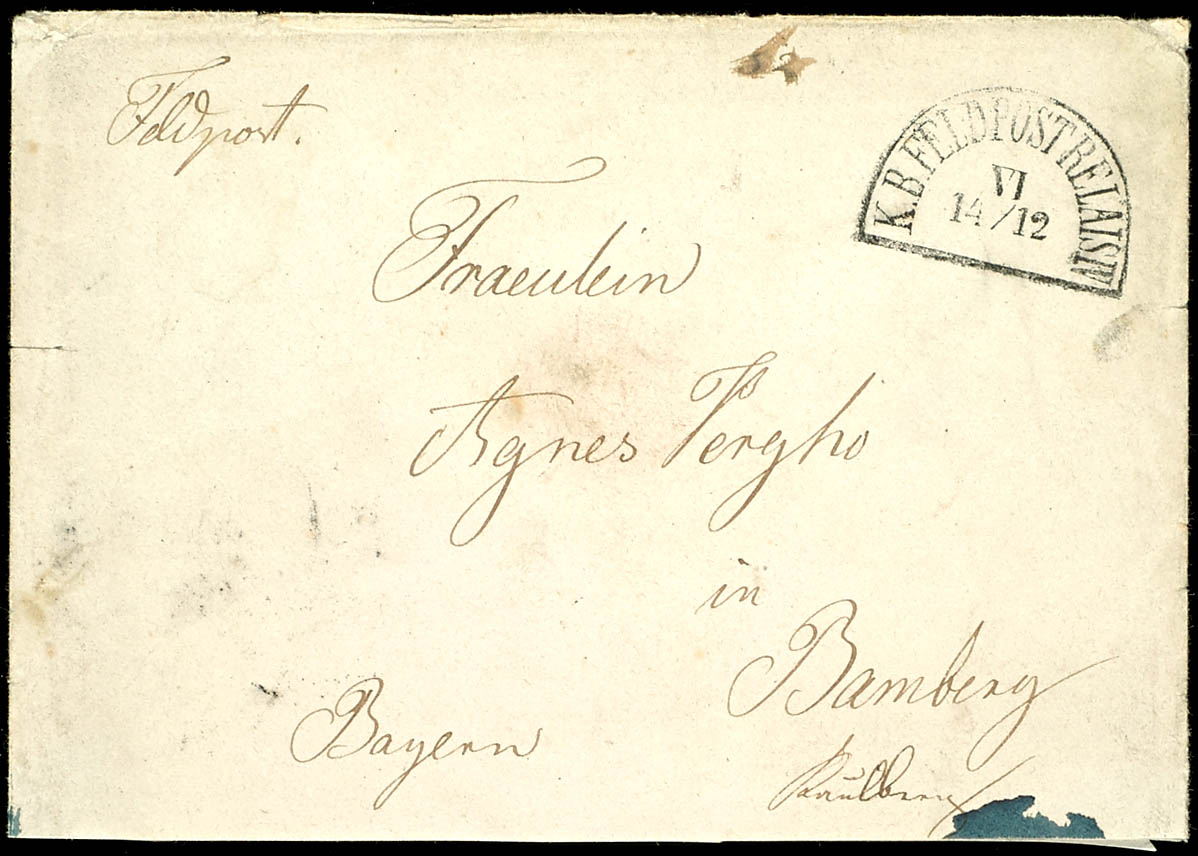 Feldpost.
K.B FELDPOSTRELAIS IV
VI
14/12
Fraeulein
Agnes Vergho
in
Bamberg
Bayern
Kaulberg